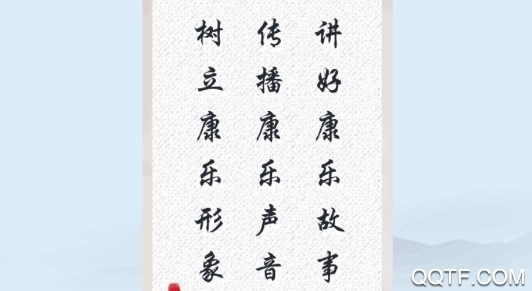 讲好康乐故事
传播康乐声音
树立康乐形象
QQTF.COM